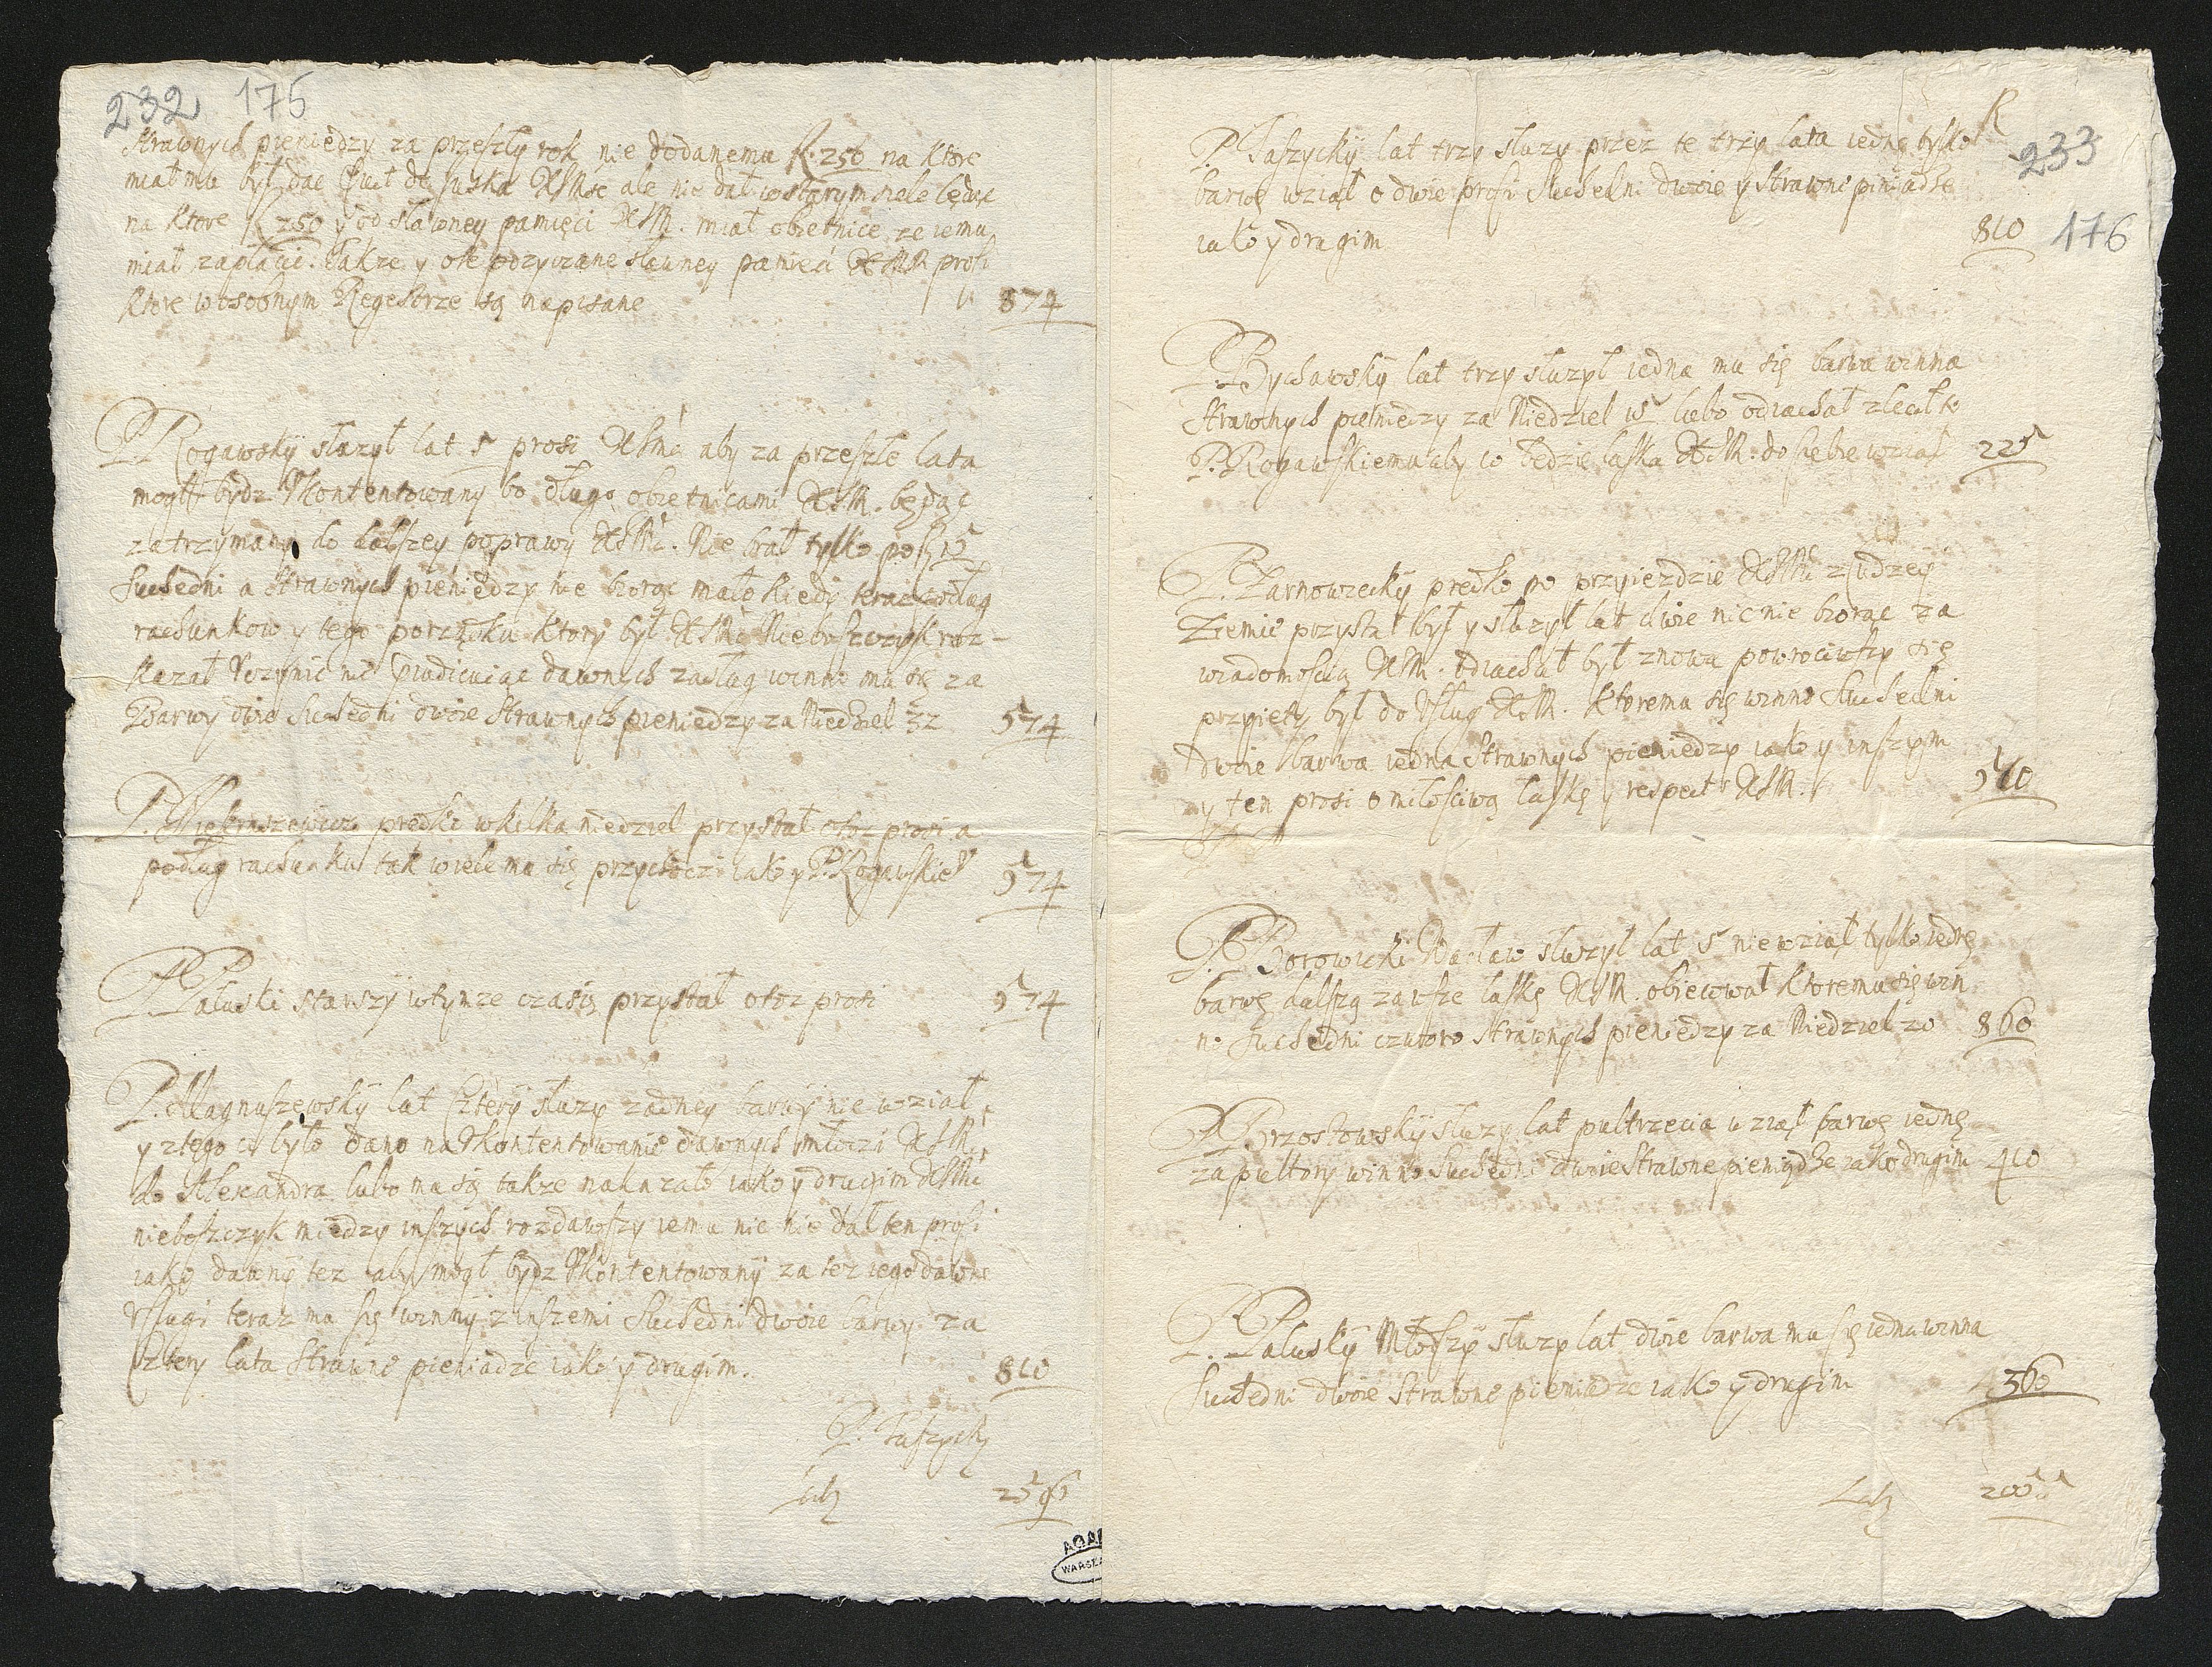 232 175
Strawnych pieniedzy za przeszły rok nie dodanemu fl. 250 na ktore
miał mu być dac ale nie dał w starym siele będąc
na ktore fl 250 y od sławney pamięci XJM. miał obietnice ze iemu
miał zapłacic. Takze y ote pozyczane sławney pamieci XJM prosi
ktore w osobnym Regestrze są napisane 874
P. Rogawsky słuzył lat 5 prosi XJMci aby za przeszłe lata
mogł bydz Vkontentowany bo długo obietnicami XJM. będąc
zatrzymany do dalszey poprawy XJMci. Nie brał tylko po fl 15
Suchedni a Strawnych pieniedzy nie biorąc mało kiedy teraz według
rachunkow y tego porządku ktory był XJMc Nieboszczyk roz-
kazał Vczynic nie dawnych zasług winno mu się za
Barwy dwie Suchedni dwoie Strawnych pieniedzy za Niedziel 32 574
P. predko w kilka niedziel przystał otoz prosi a
podług rachunku tak wiele mu się przychodzi iako y P. Rogawskie 574
P. Paluski starszy w tymze czasie przystał otoz prosi 574
P. Magnuszewsky lat Cztery słuzy zadney barwy nie wział
y z tego co było dano na Vkontentowanie dawnych młodzi XJMci
do Alexandra lubo mu się takze nalezało iako y drugim XJMc
nieboszczyk miedzy inszych rozdawszy iemu nic nie dał ten prosi
iako dawny tez aby mogł bydz Vkontentowany za tez iego dawne
Vsługi teraz mu się winny z inszemi Suchedni dwoie barwy za
Cztery lata Strawne pieniadze iako y drugim. 810
P. Taszycky
R
233
P. Taszycky lat trzy słuzy przez te trzy lata iedne tylko
barwę wziął o dwie prosi Suchedni dwoie y Strawne pieniądze
iako y drugim 810 176
P. Bychawsky lat trzy słuzył iedna mu się barwa winna
Strawnych pieniedzy za Niedziel 15 lubo odiachał zlecił to
P. Rogawskiemu aby co bedzie łaska XJM. do siebie wział 225
P. Zarnowecky predko po przyiezdzie XJMci z Cudzey
Ziemie przystał był y słuzył lat dwie nic nie biorąc za
wiadomoscią XJM. odiachał był znowu powrociwszy się
przyiety był do Vsług XJM. Ktoremu się winno Suchedni
dwoie barwa iedna Strawnych pieniedzy iako y inszym
y ten prosi o miłosciwą łaskę y respect XJM. 540
P. Borowicki Wacław słuzył lat 5 nie wziął tylko iednę
barwę dalszą zawsze łaskę XJM. obiecował ktoremu się win
no Suchedni czworo Strawnych pieniedzy za Niedziel 20 860
P. Brzostowsky słuzy lat pułtrzecia wziął barwę iednę
za pułtory winno Suchedni dwoie Strawne pieniądze iako drugim 410
P. Palusky Młodszy słuzy lat dwie barwa mu się iedna winna
Suchedni dwoie Strawne pieniadze iako y drugim 360